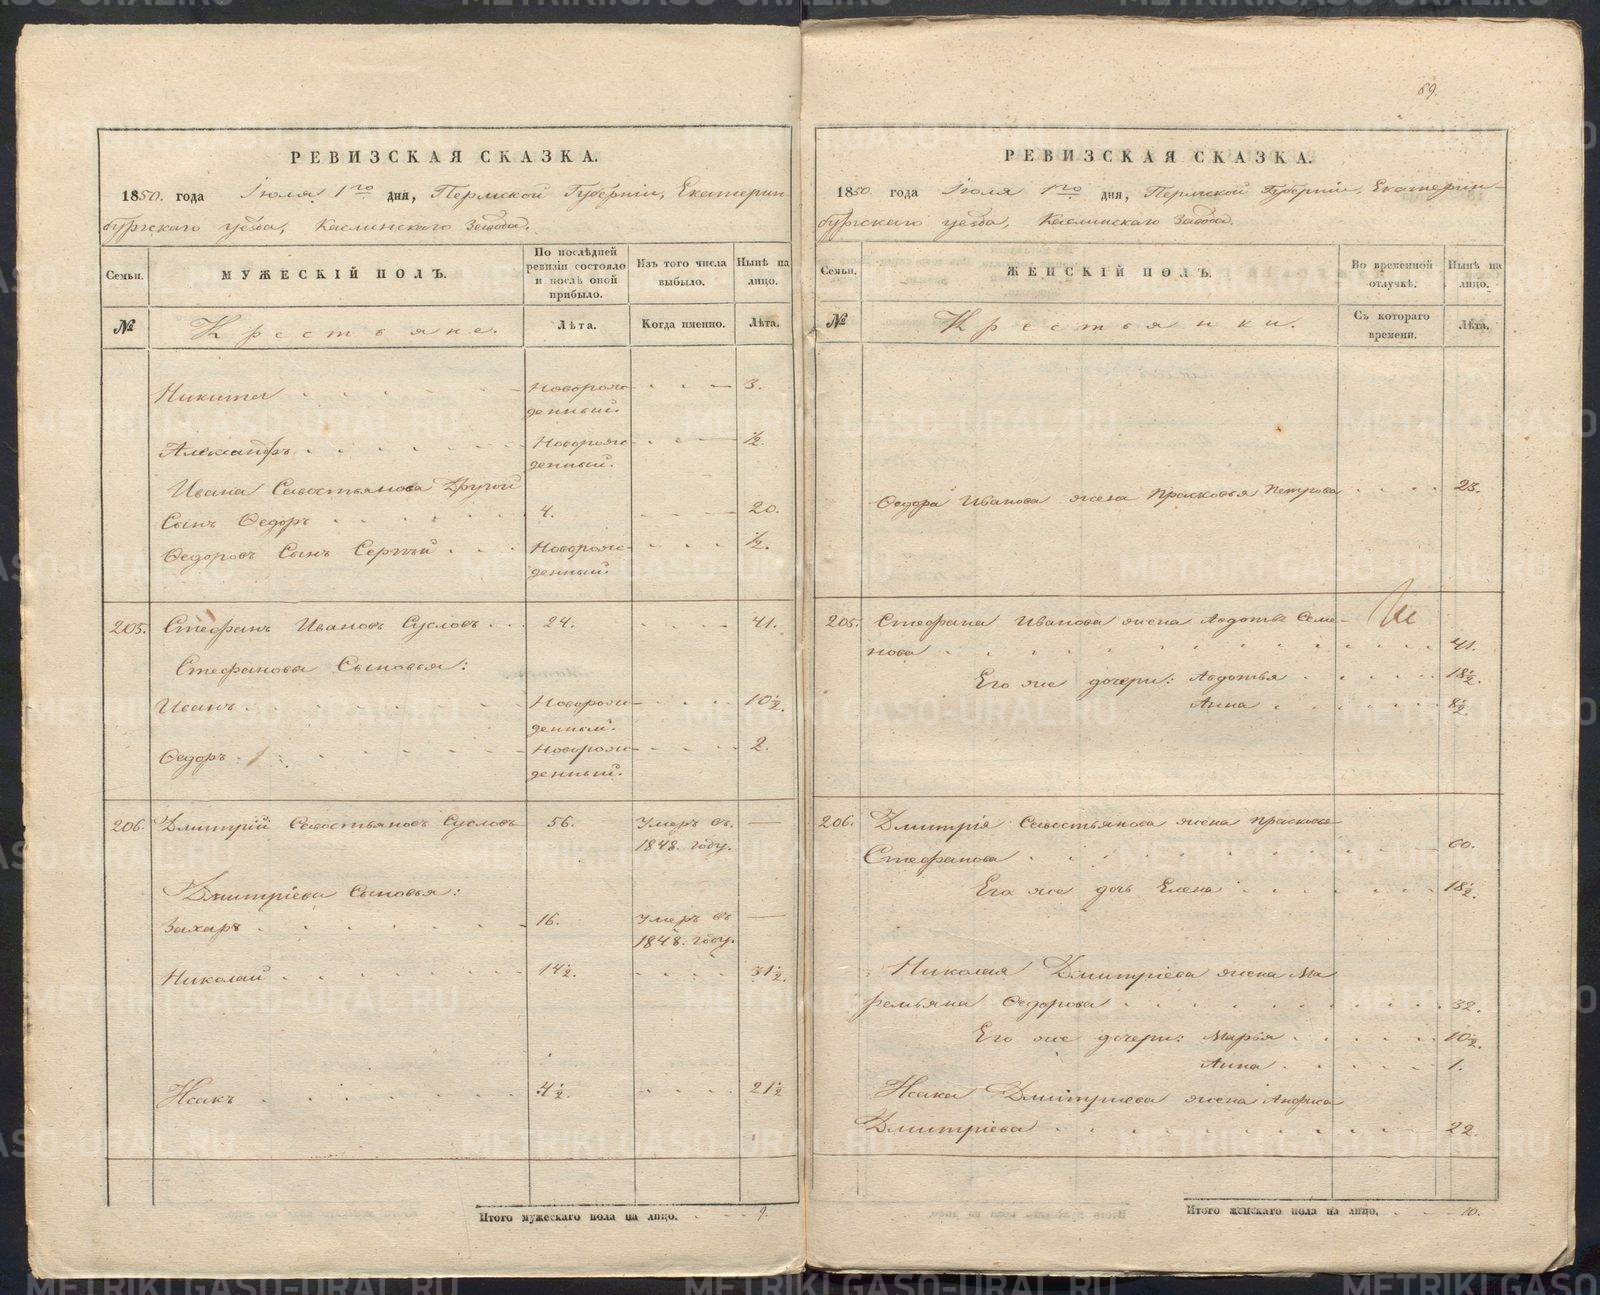 РЕВИЗСКАЯ СКАЗКА.
1850. года Іюля 1го дня, Пермской Губерніи, Екатерин
бургскаго уезда, Каслинскаго Завода.
Семьи. МУЖЕСКІЙ ПОЛЪ. По послѣдней ревизіи состояло и послѣ оной прибыло. Изъ того числа выбыло. Нынѣ на лицо.
№ Крестьяне. Лѣта. Когда именно. Лѣта.
Никита Новорож- 3.
денный.
Александръ Новорож- ½.
денный.
Ивана Савостьянова Другой
Сынъ Федоръ 4. 20.
Федоровъ Сынъ Сергѣй Новорож- ½.
денный.
205. Стефанъ Ивановъ Сусловъ 24. 41.
Стефановы Сыновья:
Иванъ Новорож- 10½.
денный.
Федоръ Новорож- 2.
денный.
206. Дмитрій Савостьяновъ Сусловъ 56. Умеръ въ —
1848. году.
Дмитріева Сыновья:
Захаръ 16. Умеръ въ —
1848. году.
Николай 14½. 31½.
Исакъ 4½. 21½
Итого мужескаго пола на лицо. 9.
69.
РЕВИЗСКАЯ СКАЗКА.
1850. года Іюля 1го дня, Пермской Губерніи, Екатерин-
бургскаго уезда, Каслинскаго Завода.
Семьи. ЖЕНСКІЙ ПОЛЪ. Во временной отлучкѣ. Нынѣ на лицо.
№ Крестьянки. Съ котораго времени. Лѣта.
Федора Иванова жена Прасковья Петрова 23.
205. Стефана Иванова жена Авдотья Семе-
нова 41.
Его же дочери: Авдотья 18½.
Анна 8½.
206. Дмитрія Савостьянова жена Прасковья
Стефанова 60.
Его же дочь Елена 18½.
Николая Дмитріева жена Ма
ремьяна Федорова 32.
Его же дочери: Марья 10½.
Анна 1.
Исака Дмитриева жена Анфиса
Дмитріева 22.
Итого женскаго пола на лицо. 10.
METRIKI.GASO-URAL.RU